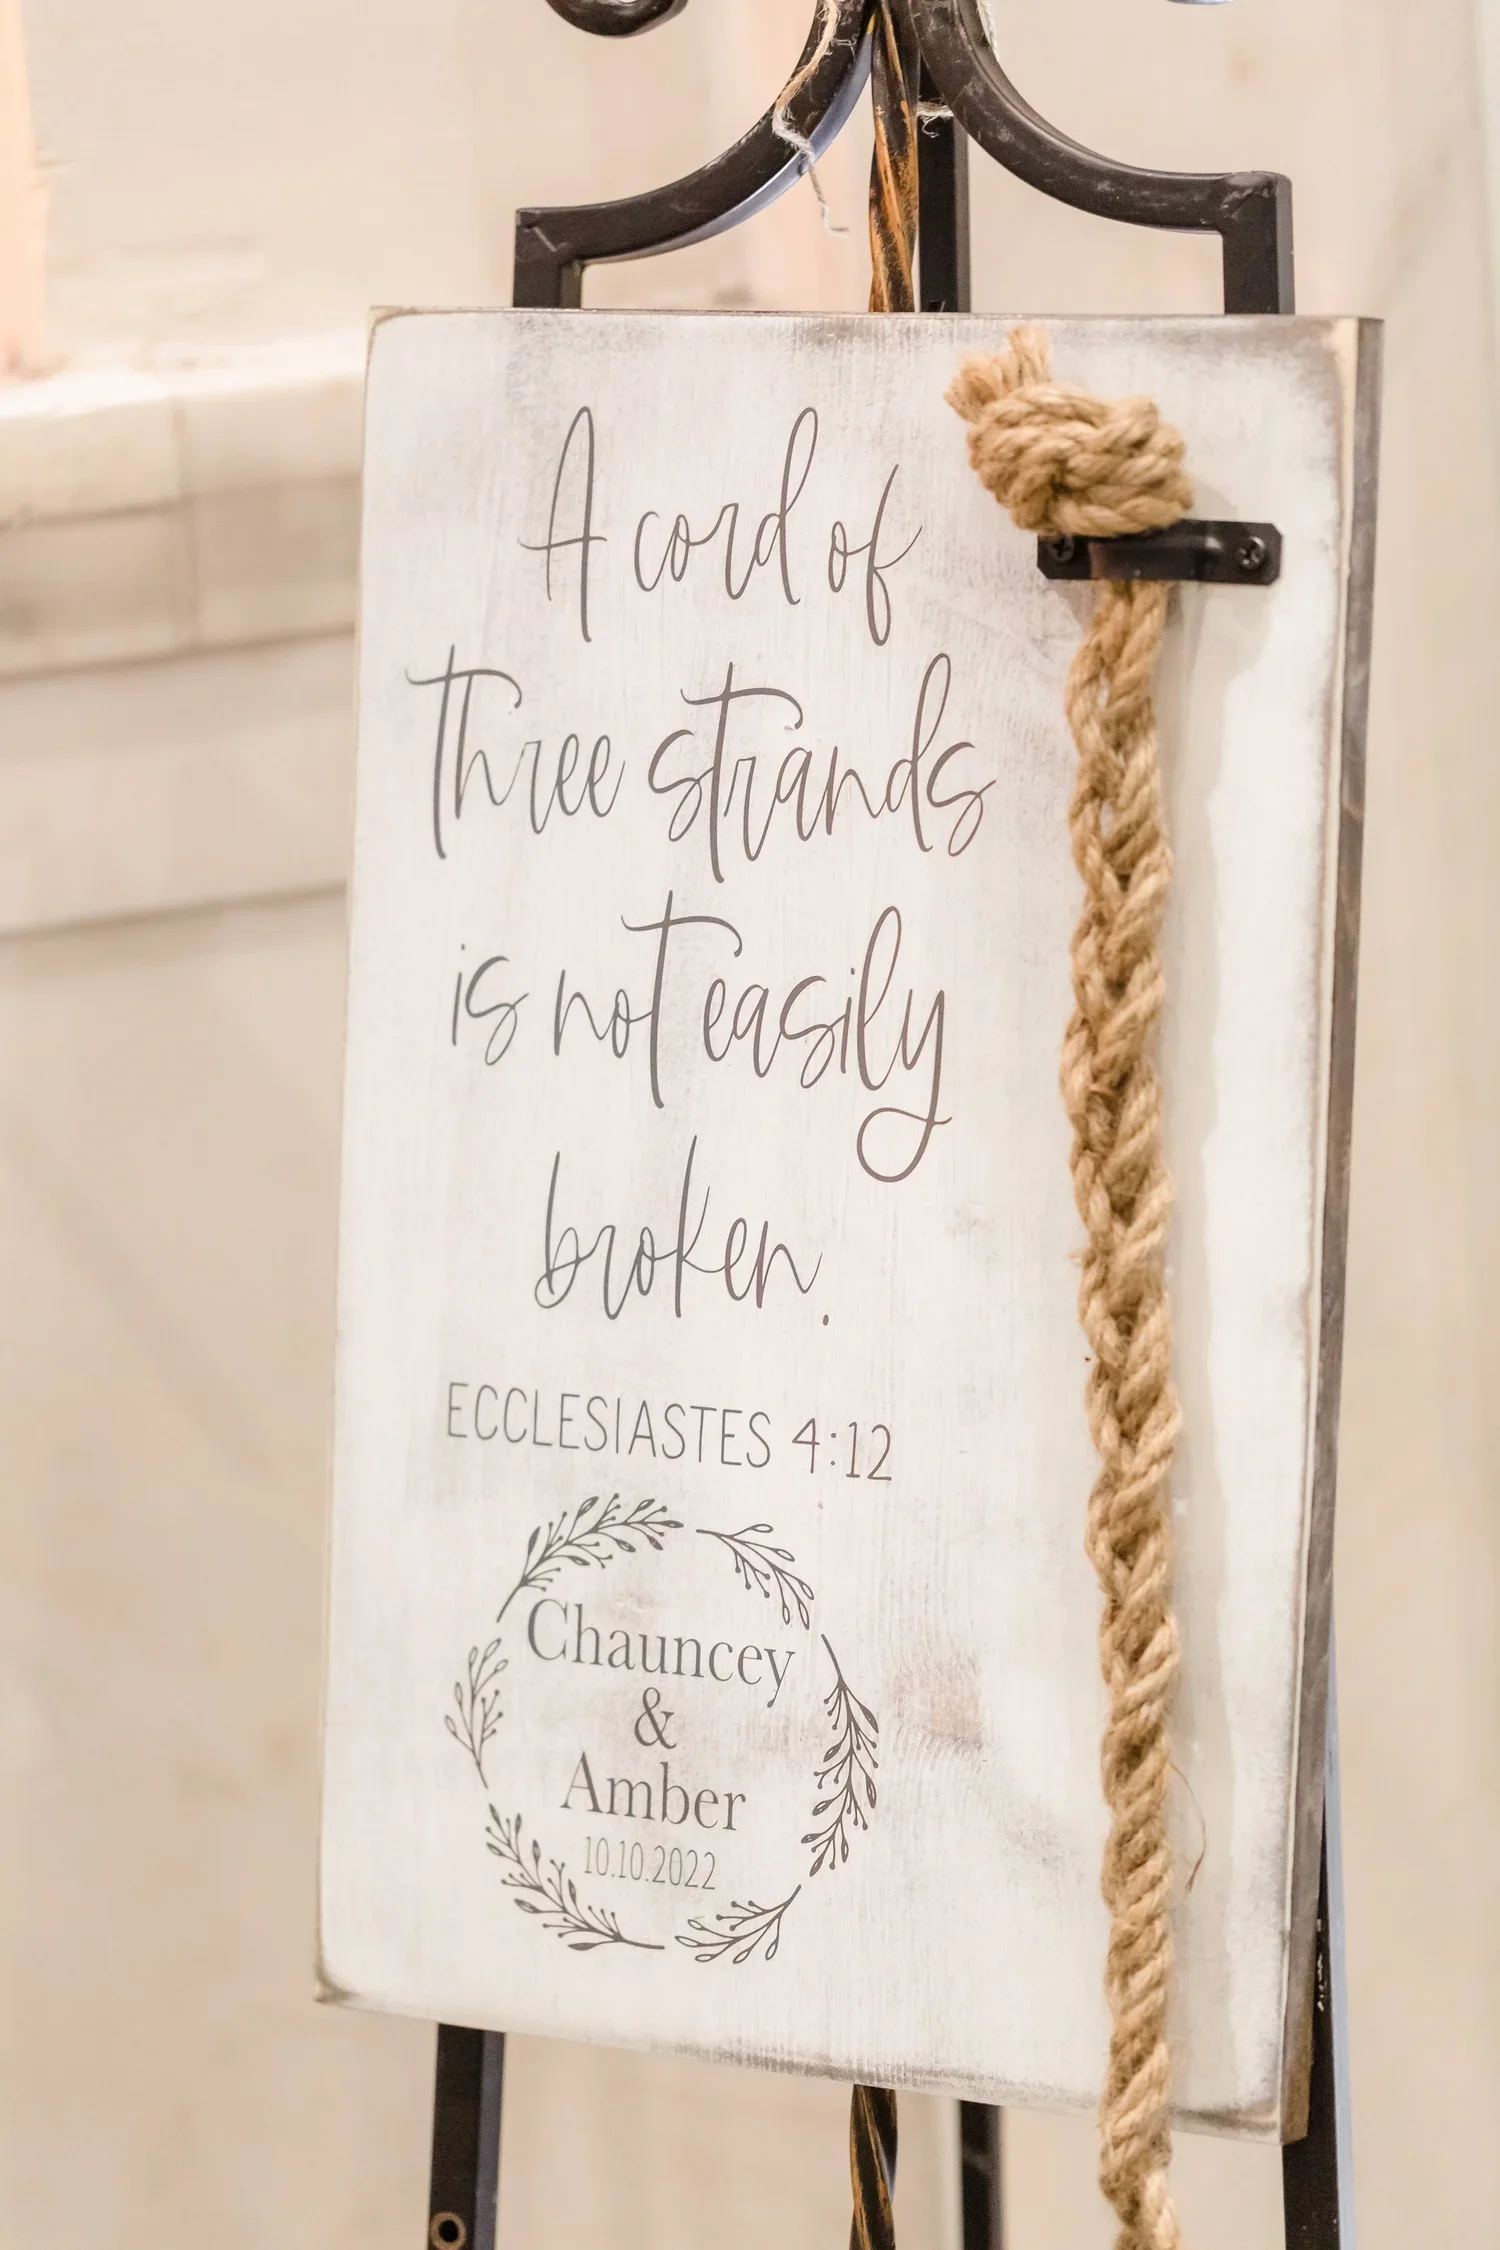 A cord of
Three strands
is not easily
broken.
ECCLESIASTES 4:12
Chauncey
&
Amber
10.10.2022